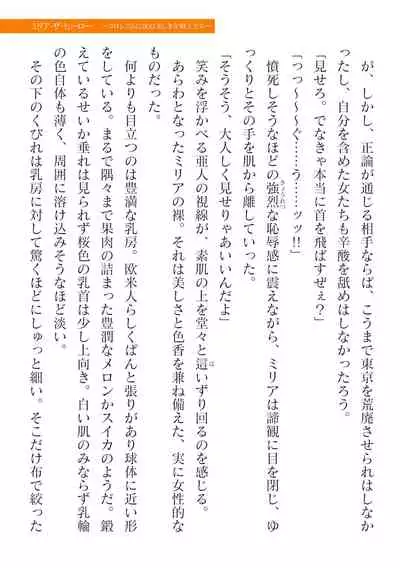 ミリア・ザ・ヒーロー
が、しかし、正論が通じる相手ならば、こうまで東京を荒廃させられはしなか
ったし、自分を含めた女たちも辛酸を舐めはしなかったろう。
「見せろ。でなきゃ本当に首を飛ばすぜぇ?」
「っっ～～～ぐ……う……ッッ!!」
憤死しそうなほどの強烈な恥辱感に震えながら、ミリアは諦観に目を閉じ、ゆ
っくりとその手を肌から離していった。
「そうそう、大人しく見せりゃあいいんだよ」
笑みを浮かべる亜人の視線が、素肌の上を堂々と這いずり回るのを感じる。
あらわとなったミリアの裸。それは美しさと色香を兼ね備えた、実に女性的な
ものだった。
何よりも目立つのは豊満な乳房。欧米人らしくぱんと張りがあり球体に近い形
をしている。まるで隅々まで果肉の詰まった豊潤なメロンかスイカのようだ。鍛
えているせいか垂れは見られず桜色の乳首は少し上向き。白い肌のみならず乳輪
の色自体も薄く、周囲に溶け込みそうなほど淡い。
その下のくびれは乳房に対して驚くほどにしゅっと細い。そこだけ布で絞った